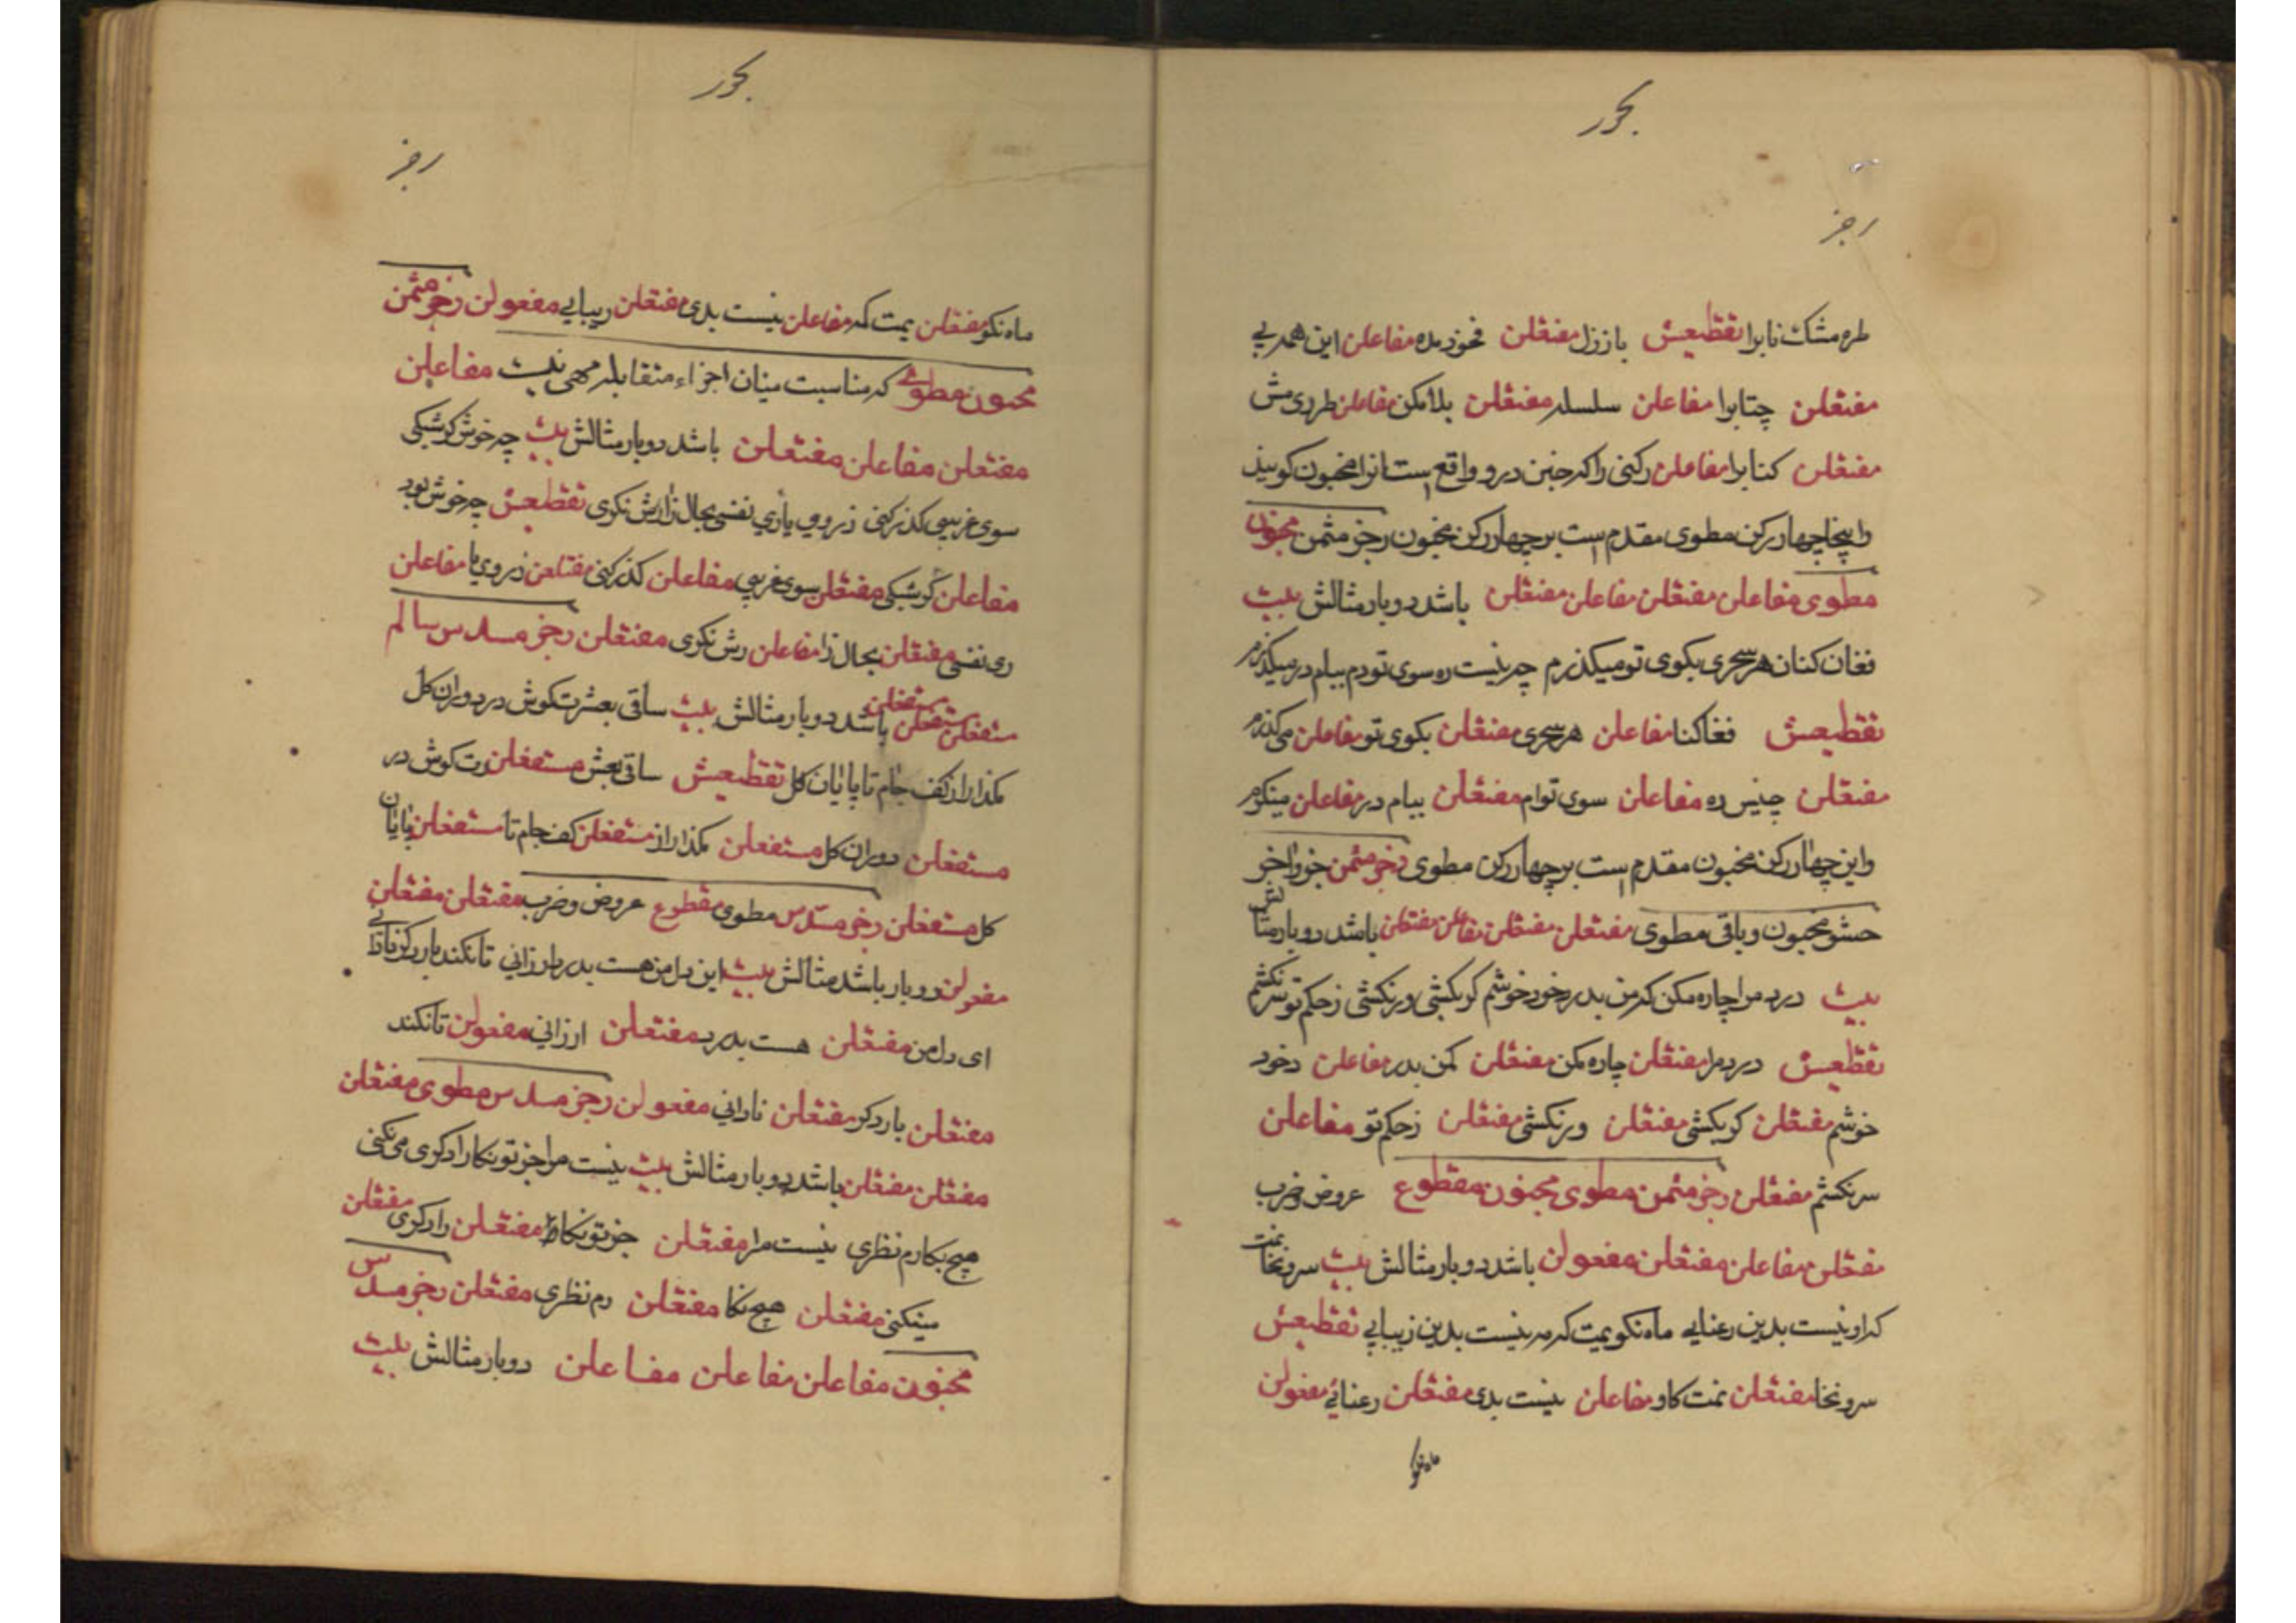 بحور
رجز
طره مشک نابرا تقطیعش باززل مفتعلن فخود مده مفاعلن این همه بی
مفتعلن چتابرا مفاعلن سلسله مفتعلن بلامکن مفاعلن طرری مش
مفتعلن کنابرا مفاعلن رکنی را که خبن درو واقع است انرا مخبون کویند
واینجا چهار رکن مطوی مقدم است بر چهار رکن مخبون رجز مثمن مخبون
مطوی مفاعلن مفتعلن مفاعلن مفتعلن باشد دوبار مثالش بیت
فغان کنان هر سحری بکوی تو میکذرم چو نیست ره سوی تو دم ببام در میکذرم
تقطیعش فغاکنا مفاعلن هر سحری مفتعلن بکوی تو مفاعلن میکذرم
مفتعلن چنیس ره مفاعلن سوی توام مفتعلن ببام در مفاعلن مینکرم
واین چهار رکن مخبون مقدم است بر چهار رکن مطوی رجز مثمن جزو اخر
حشو مخبون و باقی مطوی مفتعلن مفتعلن مفاعلن مفتعلن باشد دوبار مثالش
بیت درد مرا چاره مکن که من بدرد خود خوشم کر بکشی ور نکشی زحکم تو سر نکشم
تقطیعش درد مرا مفتعلن چاره مکن مفتعلن کمن بدر مفاعلن دخود
خوشم مفتعلن کر بکشی مفتعلن ور نکشی مفتعلن زحکم تو مفاعلن
سر نکشم مفتعلن رجز مثمن مطوی مخبون مقطوع عروض و ضرب
مفتعلن مفاعلن مفتعلن مفعولن باشد دوبار مثالش بیت سرو نخوانمت
که او نیست بدین رعنایی ماه نکویمت که مه نیست بدین زیبایی تقطیعش
سرو نخا مفتعلن نمت کاو مفاعلن نیست بدی مفتعلن رعنایی مفعولن
ماه نکو
بحور
رجز
ماه نکو مفتعلن یمت که مه مفاعلن نیست بدی مفتعلن زیبایی مفعولن رجز مثمن
مخبون مطوی که مناسبت میان اجزاء متقابله مهی نیست مفاعلن
مفتعلن مفاعلن مفتعلن باشد دوبار مثالش بیت چه خوش کر شبکی
سوی غریبی کذر کنی ز روی یاری نفسی بحال زارش نکری تقطیعش چه خوش بود
مفاعلن کر شبکی مفتعلن سوی غریبی مفاعلن کذر کنی مفتعلن ز روی یا مفاعلن
ری نفسی مفتعلن بحال زا مفاعلن رش نکری مفتعلن رجز مسدس سالم
مستفعلن مستفعلن مستفعلن باشد دوبار مثالش بیت ساقی بعشرت کوش در دوران کل
مکذار از کف جام تا پایان کل تقطیعش ساقی بعش مستفعلن رت کوش در
مستفعلن دوران کل مستفعلن مکذار از مستفعلن کف جام تا مستفعلن پایان
کل مستفعلن رجز مسدس مطوی مقطوع عروض و ضرب مفتعلن مفتعلن
مفعولن دوبار باشد مثالش بیت این دل من هست بدرد ارزانی تا نکند بار دکر نادانی
ای دل من مفتعلن هست بدرد مفتعلن ارزانی مفعولن تا نکند
مفتعلن بار دکر مفتعلن نادانی مفعولن رجز مسدس مطوی مفتعلن
مفتعلن مفتعلن باشد دوبار مثالش بیت نیست مرا جز تو نکارا دکری می نکنی
هیچ بکارم نظری نیست مرا مفتعلن جز تو نکا مفتعلن را دکری مفتعلن
مینکنی مفتعلن هیچ نکا مفتعلن رم نظری مفتعلن رجز مسدس
مخبون مفاعلن مفاعلن مفاعلن دوبار مثالش بیت